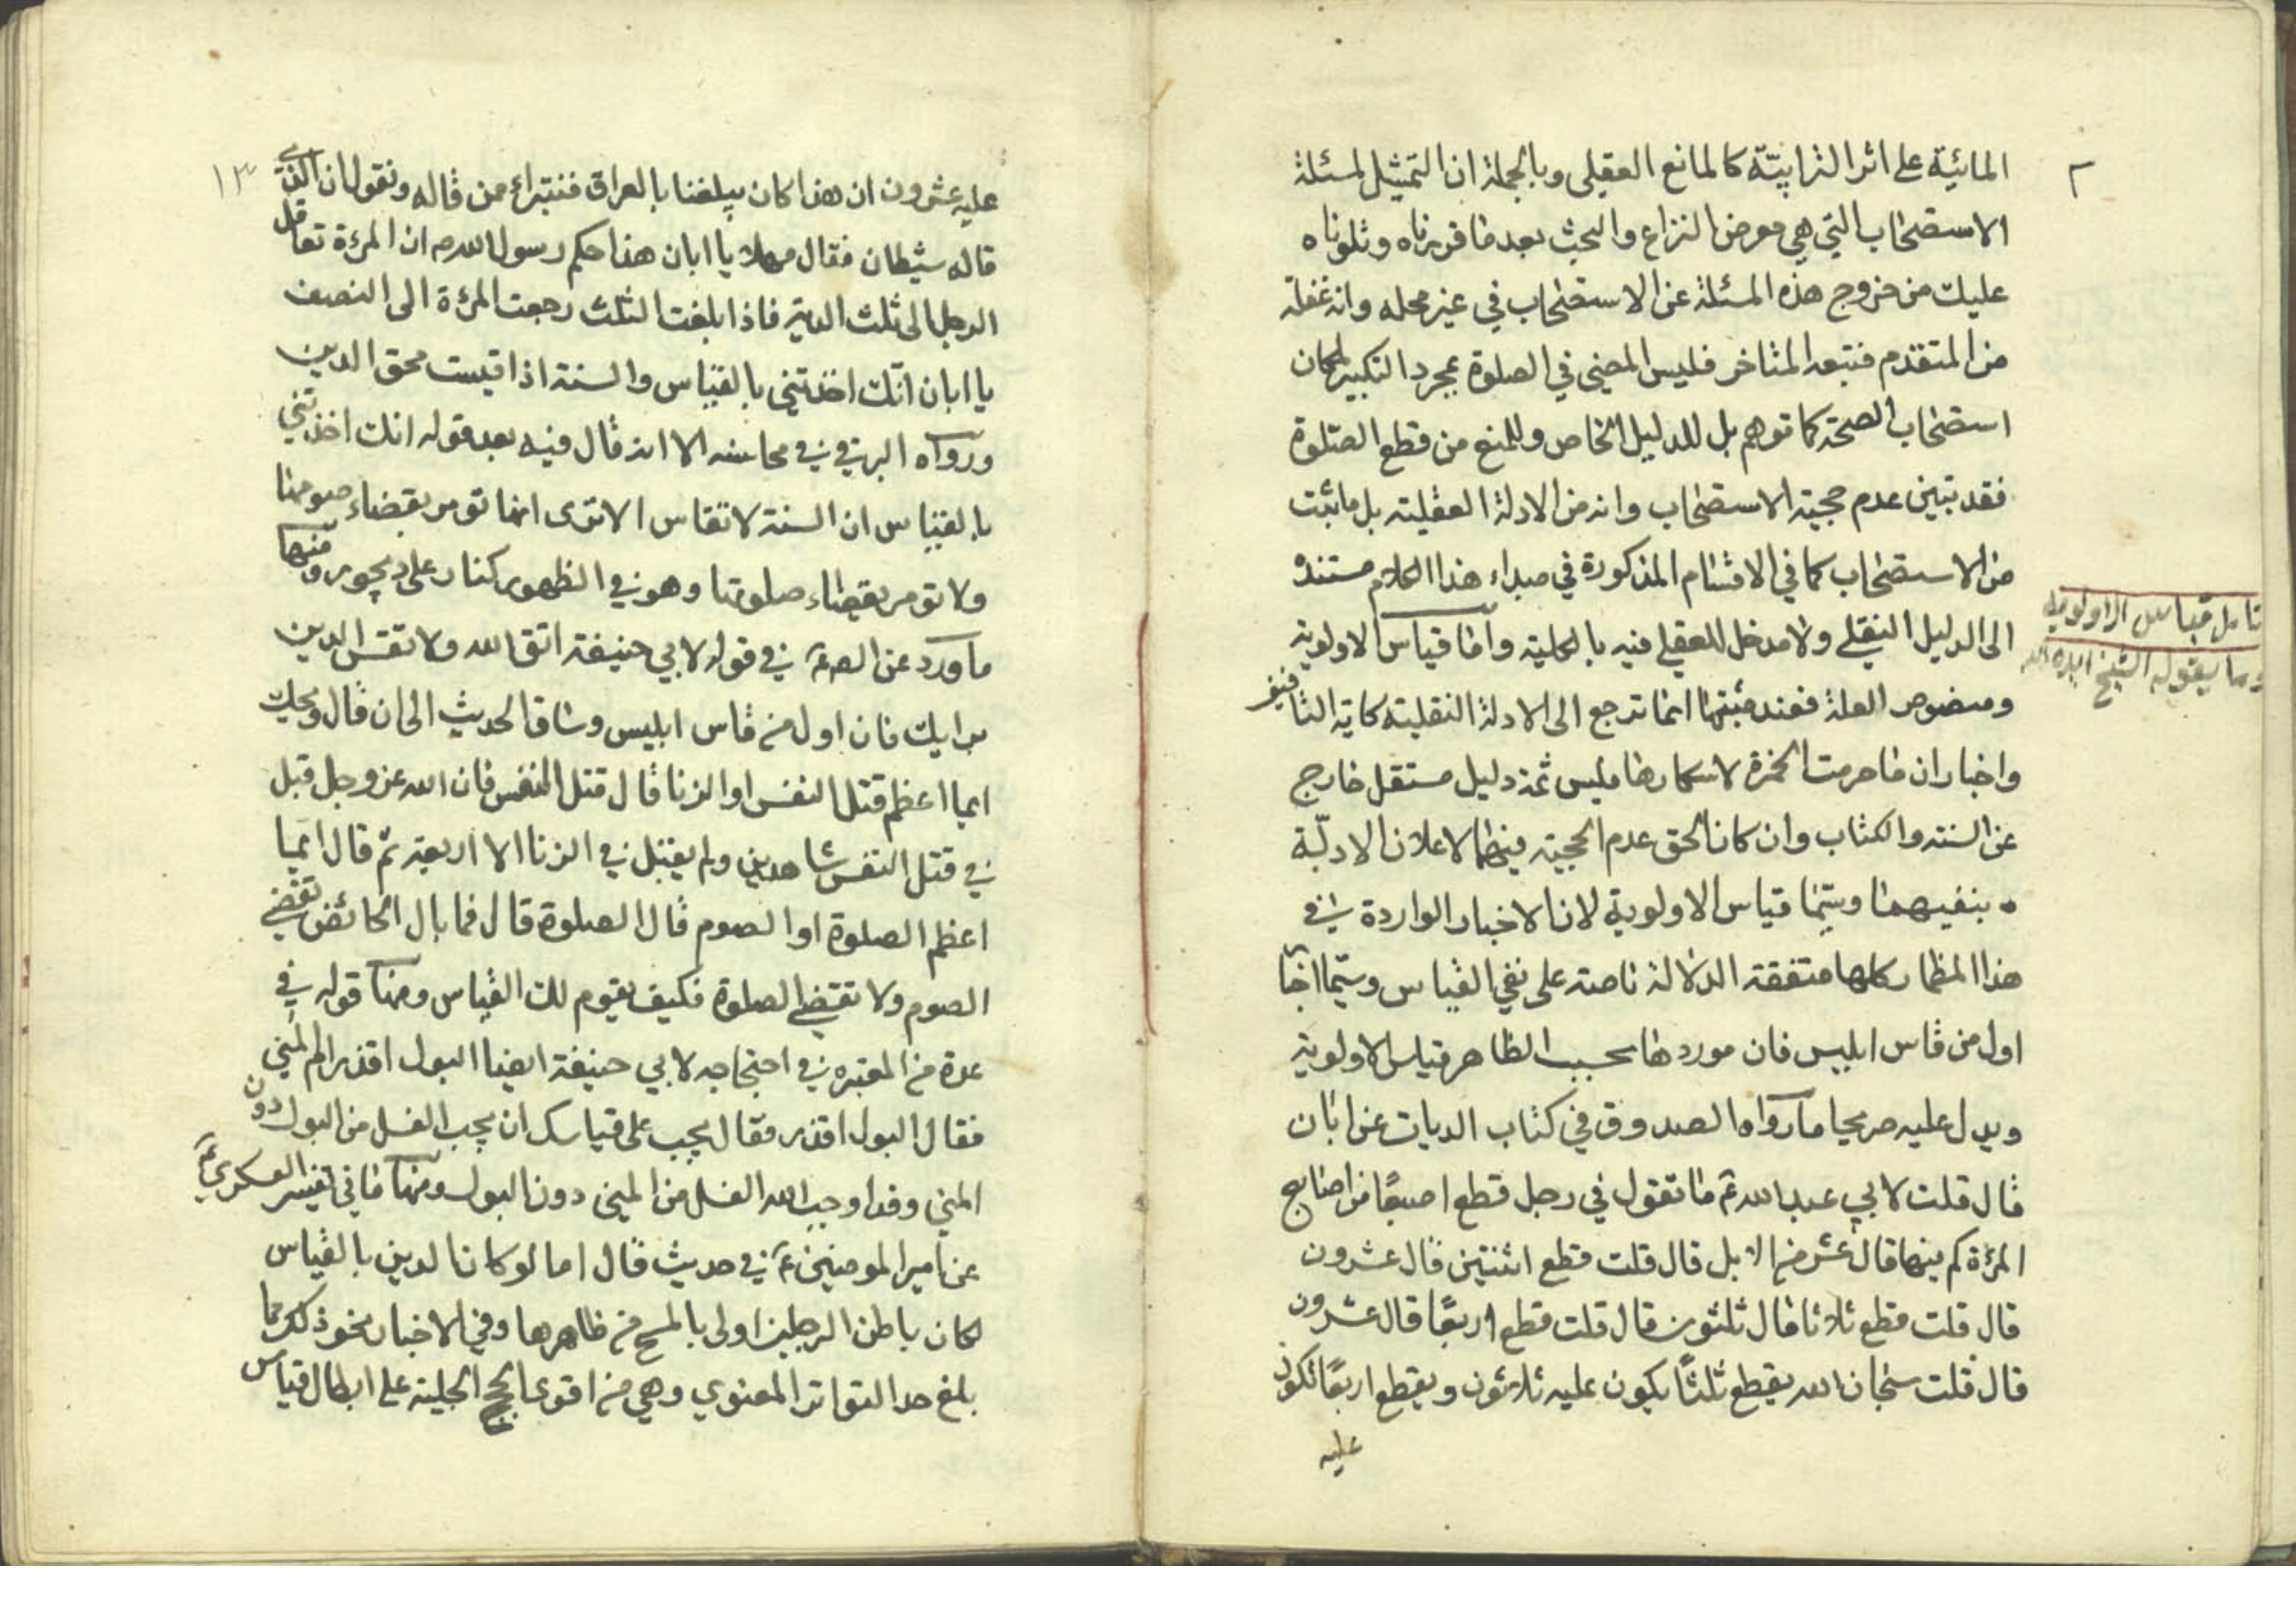 المائية على اثر الترابية كالمانع العقلي وبالجملة ان التمثيل لمسئلة
الاستصحاب التي هي معرض النزاع والبحث بعد ما قررناه وتلوناه
عليك من خروج هذه المسئلة عن الاستصحاب في غير محله وانه غفلة
من المتقدم فتبعه المتاخر فليس المضي في الصلوة بمجرد التكبير لمكان
استصحاب الصحة كما توهم بل للدليل الخاص وللمنع من قطع الصلوة
فقد تبين عدم حجية الاستصحاب وانه من الادلة العقلية بل ما ثبت
من الاستصحاب كما في الاقسام المذكورة في مبداء هذا الكلام مستنده
الى الدليل النقلي ولا مدخل للعقلي فيه بالكلية واما قياس الاولوية
ومنصوص العلة فعند مثبتهما انما ترجع الى الادلة النقلية كاية التافيف
واخبار ان ما حرمت الخمرة لاسكارها فليس ثمة دليل مستقل خارج
عن السنة والكتاب وان كان الحق عدم الحجية فيهما لاعلان الادلة
بنفيهما وسيما قياس الاولوية لان الاخبار الواردة في
هذا المظمار كلها متفقة الدلالة ناصة على نفي القياس وسيما اخبار
اول من قاس ابليس فان موردها بحسب الظاهر قياس الاولوية
ويدل عليه صريحا ما رواه الصدوق في كتاب الديات عن ابان
قال قلت لابي عبد الله ع ما تقول في رجل قطع اصبعًا من اصابع
المرئة كم فيها قال عشر من الابل قال قلت قطع اثنتين قال عشرون
قال قلت قطع ثلاثا قال ثلثون قال قلت قطع اربعًا قال عشرون
قال قلت سبحان الله يقطع ثلثًا يكون عليه ثلاثون ويقطع اربعًا تكون
عليه
تامل قياس الاولوية
وما يقوله الشيخ ايده الله
١٣
عليه عشرون ان هذا كان يبلغنا بالعراق فنتبراء ممن قاله ونقول ان الذي
قاله شيطان فقال مهلا يا ابان هذا حكم رسول الله ص ان المرءة تعاقل
الرجل الى ثلث الدية فاذا بلغت الثلث رجعت المرءة الى النصف
يا ابان انك اخذتني بالقياس والسنة اذا قيست محق الدين
ورواه البرقي في محاسنه الا انه قال فيه بعد قوله انك اخذتني
بالقياس ان السنة لا تقاس الا ترى انها تؤمر بقضاء صومها
ولا تؤمر بقضاء صلوتها وهو في الظهور كنار على ديجور ومنها
ما ورد عن الص ع في قوله لابي حنيفة اتق الله ولا تقس الدين
برايك فان اول من قاس ابليس وساق الحديث الى ان قال ويحك
ايما اعظم قتل النفس او الزنا قال قتل النفس فان الله عز وجل قبل
في قتل النفس شاهدين ولم يقبل في الزنا الا اربعة ثم قال ايما
اعظم الصلوة او الصوم قال الصلوة قال فما بال الحائض تقضي
الصوم ولا تقضي الصلوة فكيف يقوم لك القياس ومنها قوله في
عدة من المعتبرة في احتجاجه لابي حنيفة ايضا البول اقذر ام المني
فقال البول اقذر فقال يجب على قياسك ان يجب الغسل من البول دون
المني وقد اوجب الله الغسل من المني دون البول ومنها ما في تفسير العسكري ع
عن امير المومنين ع في حديث قال اما لو كان الدين بالقياس
لكان باطن الرجلين اولى بالمسح من ظاهرها وفي الاخبار نحو ذلك مما
بلغ حد التواتر المعنوي وهي من اقوى الحجج الجلية على ابطال قياس